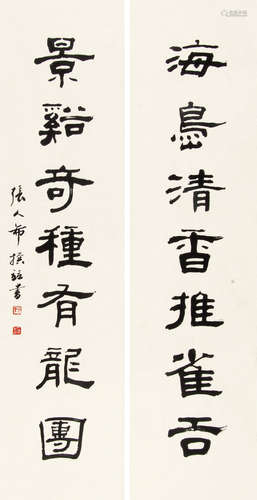 海島清香推雀舌
景谿奇種有龍團
張人希撰並書